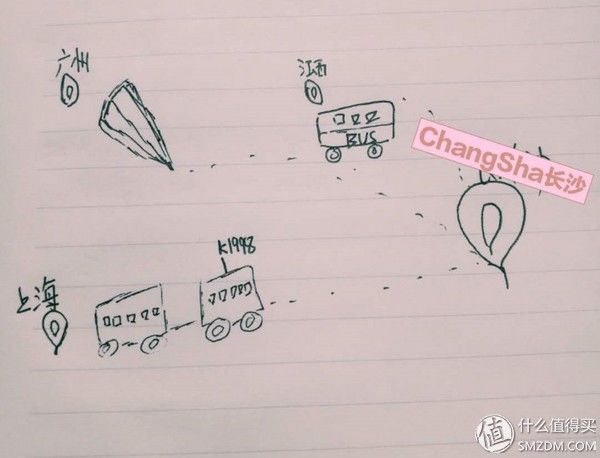 广州
江西
BUS
ChangSha长沙
K1998
上海
值 什么值得买
SMZDM.COM